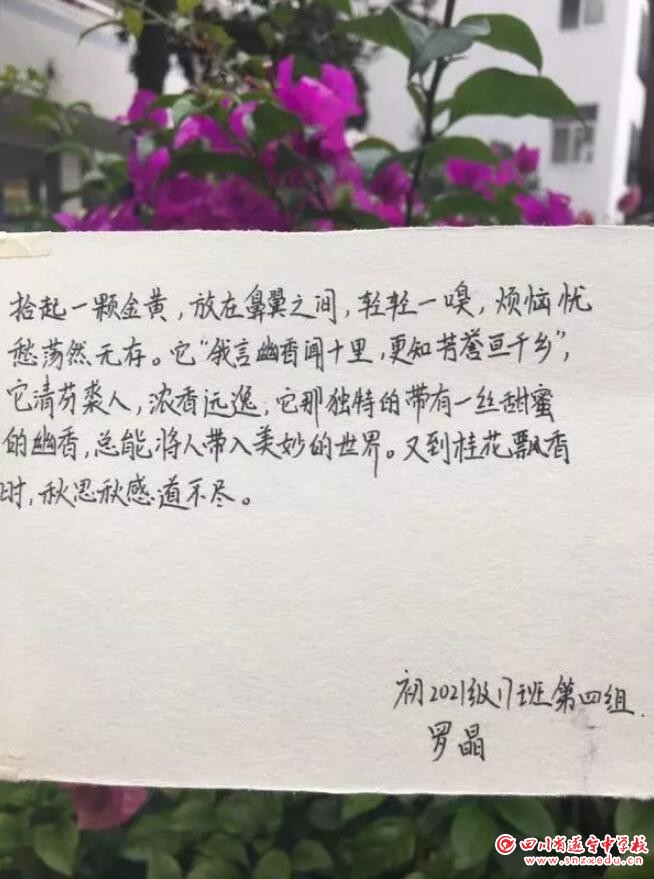 拾起一颗金黄，放在鼻翼之间，轻轻一嗅，烦恼忧
愁荡然无存。它“俄言幽香闻十里，更知芳誉亘千乡”，
它清芬袭人，浓香远逸，它那独特的带有一丝甜蜜
的幽香，总能将人带入美妙的世界。又到桂花飘香
时，秋思秋感道不尽。
初2021级17班第四组.
罗晶
四川省遂宁中学校
www.snzxedu.cn